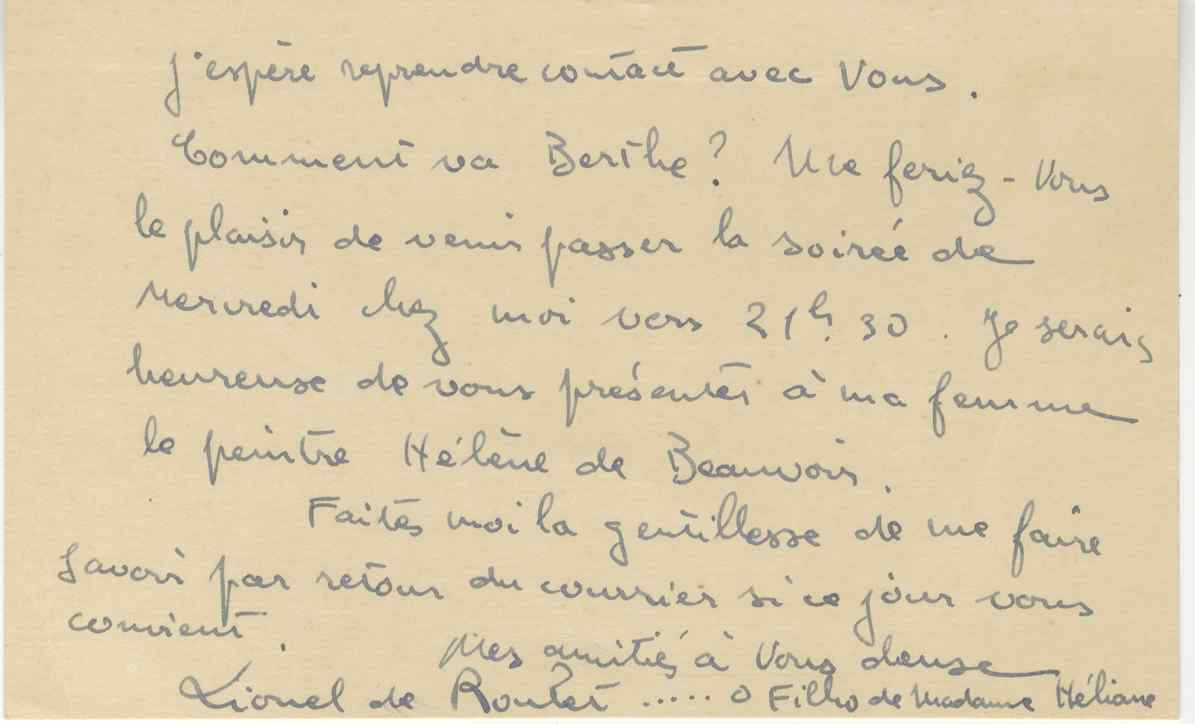 J'espère reprendre contact avec Vous.
Comment va Berthe? Me feriez-Vous
le plaisir de venir passer la soirée de
Mercredi chez moi vers 21h.30. Je serais
heureuse de vous présenter à ma femme
le peintre Hélène de Beauvoir.
Faites moi la gentillesse de me faire
savoir par retour du courrier si ce jour vous
convient.
Mes amitiés à Vous deuse
Lionel de Roulet ..... o Filho de Madame Héliane